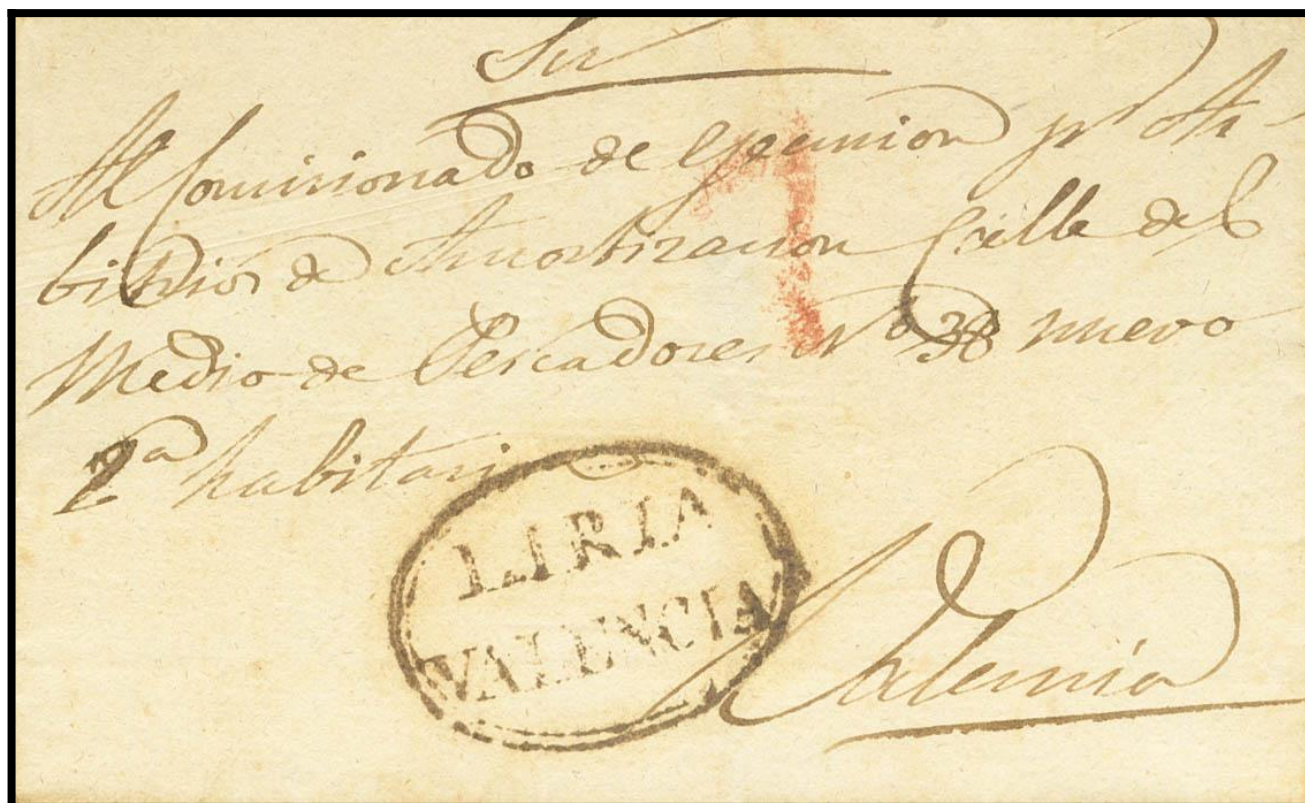 Al Comisionado de Egecucion pr Ar-
bitrios de Amortizacion Calle del
Medio de Pescadores No 38 nuevo
2a habitaci
LIRIA
VALENCIA
Valencia